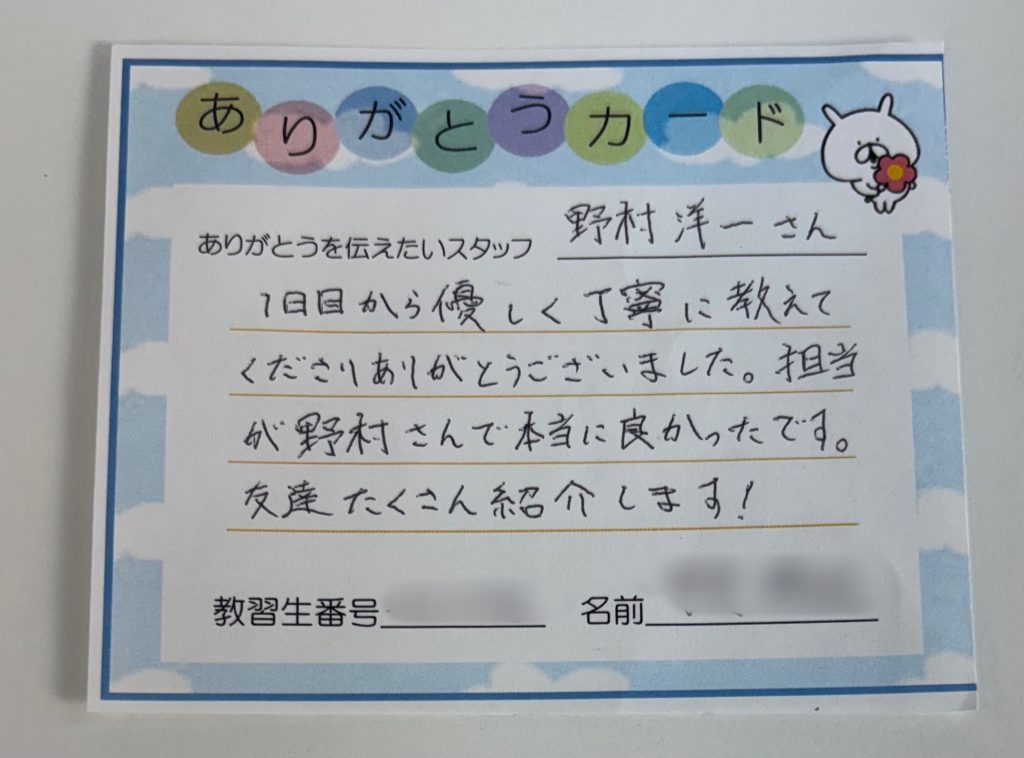 ありがとうカード
ありがとうを伝えたいスタッフ 野村洋一さん
1日目から優しく丁寧に教えて
くださりありがとうございました。担当
が野村さんで本当に良かったです。
友達たくさん紹介します!
教習生番号 名前